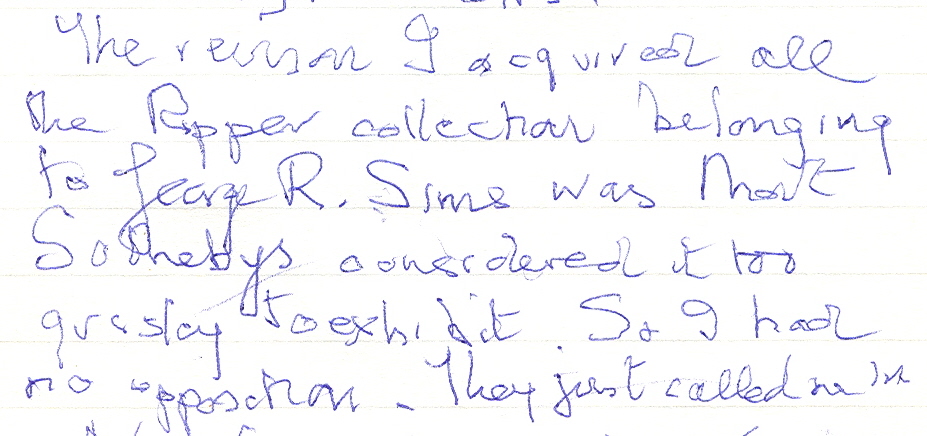 The reason I acquired all
the Ripper collection belonging
to George R. Sims was that
Sothebys considered it too
grisly to exhibit. So I had
no opposition - They just called me in